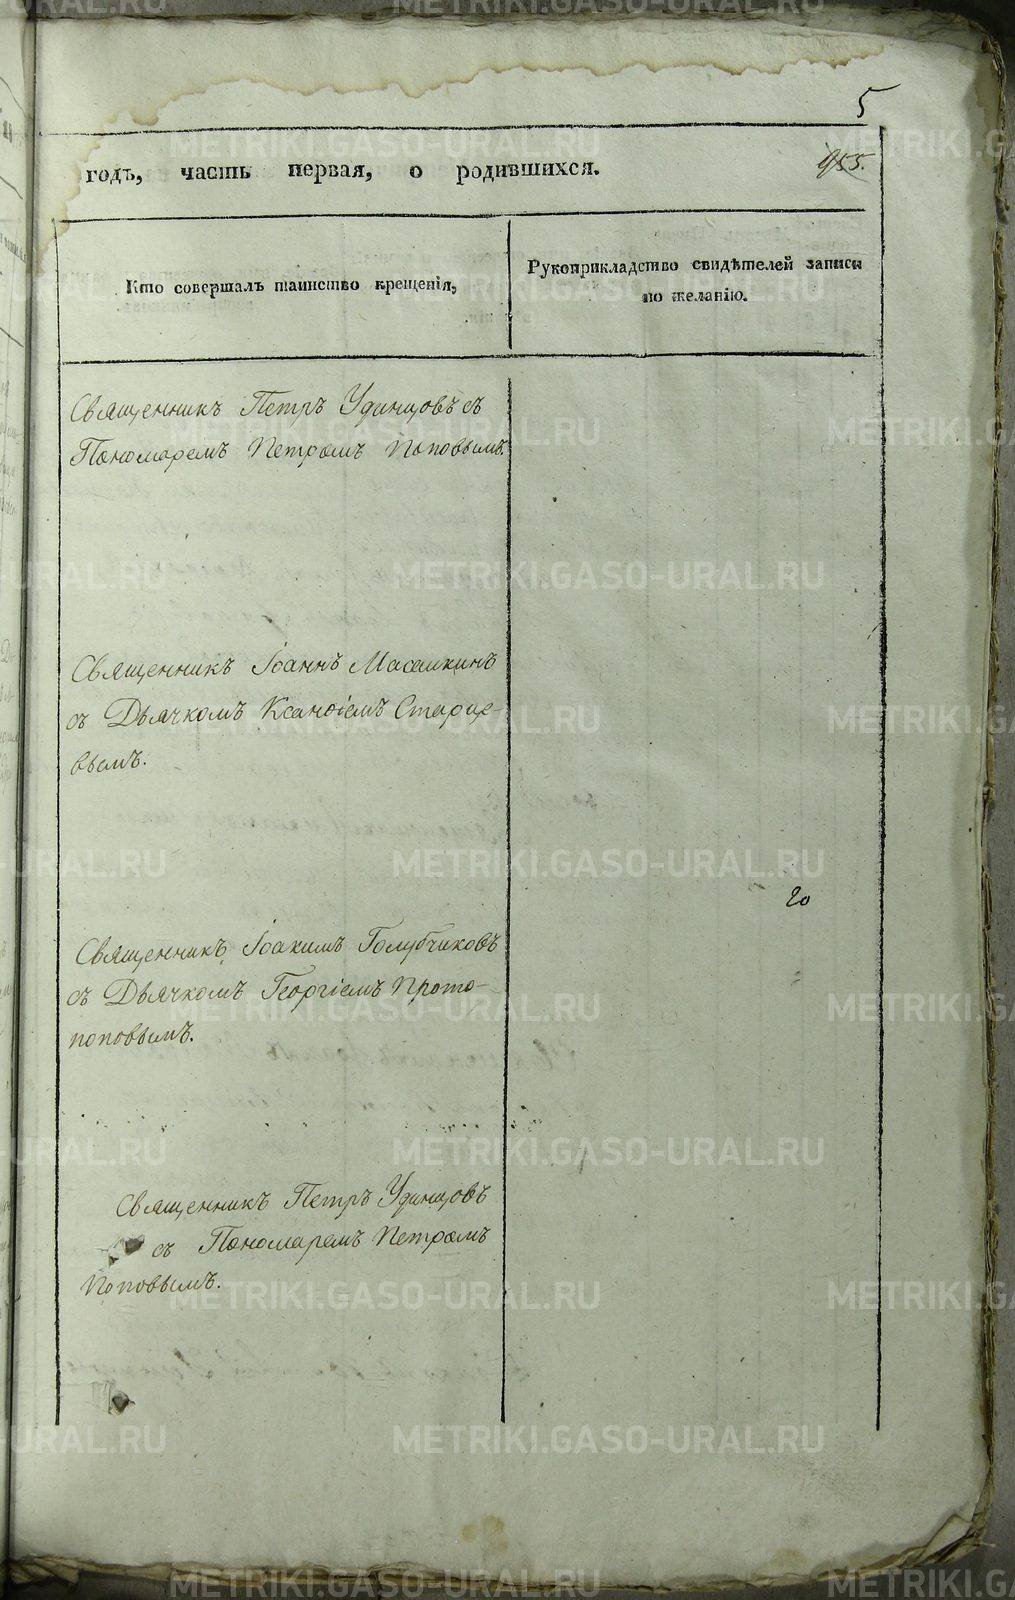 5
годъ, часть первая, о родившихся.
955.
Кто совершалъ таинство крещенія,
Рукоприкладство свидѣтелей записи
по желанію.
Священникъ Петръ Удинцовъ съ
Пономаремъ Петромъ Поповымъ.
Священникъ Іоаннъ Масалкинъ
съ Дьячкомъ Ксанѳіемъ Старце-
вымъ.
20
Священникъ Іоакимъ Голубчиковъ
съ Дьячкомъ Георгіемъ Прото-
поповымъ.
Священникъ Петръ Удинцовъ
съ Пономаремъ Петромъ
Поповымъ.
METRIKI.GASO-URAL.RU